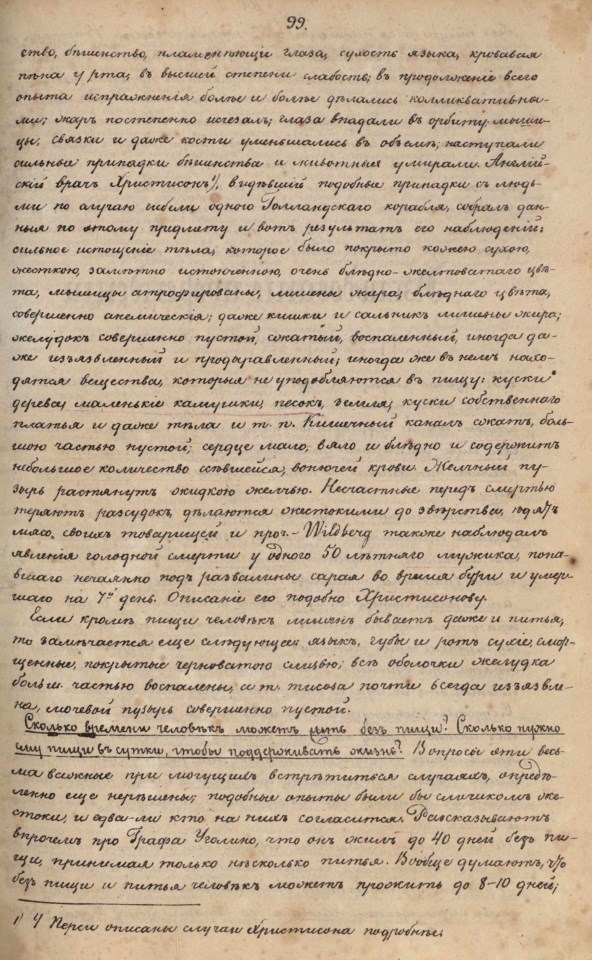 99.
ство, бѣшенство, пламенѣющіе глаза, сухость языка, кровавая
пѣна у рта; въ высшей степени слабость; въ продолженіе всего
опыта испражненія болѣе и болѣе дѣлались колликвативны-
ми; жаръ постепенно исчезалъ; глаза впадали въ орбиту; мыши-
цы, связки и даже кости уменьшались въ объемѣ; наступали
сильные припадки бѣшенства и животныя умирали. Англій-
скій врачъ Христисонъ 1), видѣвшій подобные припадки съ людь-
ми по случаю гибели одного Голландскаго корабля, собралъ дан-
ныя по этому предмету и вотъ результатъ его наблюденій:
сильное истощеніе тѣла, которое было покрыто кожею сухою,
жесткою, замѣтно истонченною, очень блѣдно-желтоватаго цвѣ-
та, мышицы атрофированы, лишены жира, блѣднаго цвѣта,
совершенно анемическія; даже кишки и сальникъ лишены жира;
желудокъ совершенно пустой, сжатый, воспаленный, иногда да-
же изъязвленный и продыравленный; иногда же въ немъ нахо-
дятся вещества, которыя не уподобляются въ пищу: куски
дерева, маленькіе камушки, песокъ, земля, куски собственнаго
платья и даже тѣла и т. п. Кишечный каналъ сжатъ, боль-
шою частью пустой; сердце мало, вяло и блѣдно и содержитъ
небольшое количество ссѣвшейся, вонючей крови. Желчный пу-
зырь растянутъ жидкою желчью. Несчастные передъ смертью
теряютъ разсудокъ, дѣлаются жестокими до звѣрства, ѣдятъ
мясо своихъ товарищей и проч. – Wildberg также наблюдалъ
явленія голодной смерти у одного 50 лѣтняго мужика, попа-
вшаго нечаянно подъ развалины сарая во время бури и умер-
шаго на 7й день. Описаніе его подобно Христисонову.
Если кромѣ пищи человѣкъ лишенъ бываетъ даже и питья,
то замѣчается еще слѣдующее: языкъ, губы и ротъ сухіе, смор-
щенные, покрытые черноватою слизью; всѣ оболочки желудка
больш. частью воспалены, почти всегда изъязвле-
на, мочевой пузырь совершенно пустой.
Сколько времени человѣкъ можетъ жить безъ пищи? Сколько нужно
ему пищи въ сутки, чтобы поддерживать жизнь? Вопросы эти весь-
ма важные при могущихъ встрѣтиться случаяхъ, опредѣ-
ленно еще нерѣшены; подобные опыты были бы слишкомъ же-
стоки, и едва-ли кто на нихъ согласится. Разсказываютъ
впрочемъ про Графа Уголино, что онъ жилъ до 40 дней безъ пи-
щи, принимая только нѣсколько питья. Вообще думаютъ, что
безъ пищи и питья человѣкъ можетъ прожить до 8-10 дней;
1) У Перси описаны случаи Христисона подробнѣе.